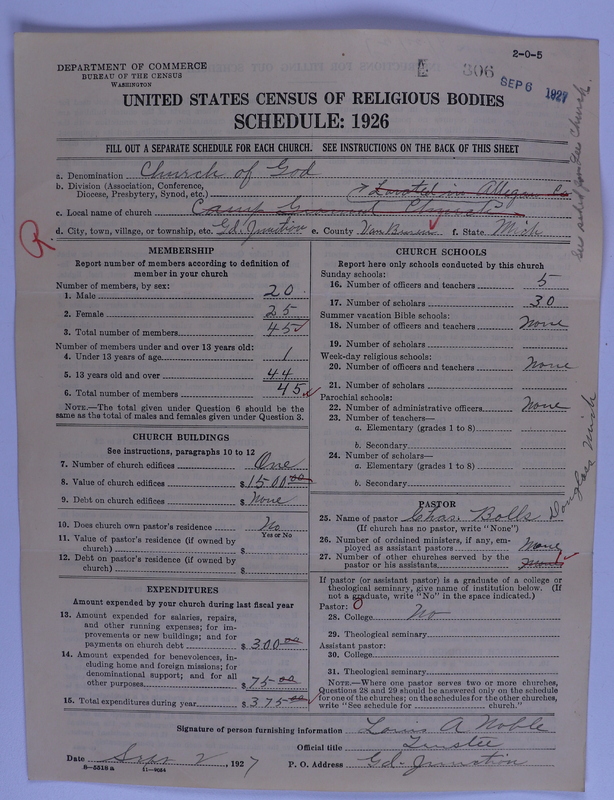 2-0-5
DEPARTMENT OF COMMERCE
BUREAU OF THE CENSUS
WASHINGTON
306
SEP 6 1927
UNITED STATES CENSUS OF RELIGIOUS BODIES
SCHEDULE: 1926
FILL OUT A SEPARATE SCHEDULE FOR EACH CHURCH. SEE INSTRUCTIONS ON THE BACK OF THIS SHEET
a. Denomination Church of God
b. Division (Association, Conference, Diocese, Presbytery, Synod, etc.) Located in Allegan Co
c. Local name of church Camp Ground Church
d. City, town, village, or township, etc. Gd. Junction e. County Van Buren f. State Mich
MEMBERSHIP
Report number of members according to definition of
member in your church
Number of members, by sex:
1. Male 20
2. Female 25
3. Total number of members 45
Number of members under and over 13 years old:
4. Under 13 years of age 1
5. 13 years old and over 44
6. Total number of members 45
NOTE.—The total given under Question 6 should be
same as the total of males and females given under Question 3.
CHURCH BUILDINGS
See instructions, paragraphs 10 to 12
7. Number of church edifices One
8. Value of church edifices $1500.00
9. Debt on church edifices $ None
10. Does church own pastor's residence No
Yes or No
11. Value of pastor's residence (if owned by
church) $
12. Debt on pastor's residence (if owned by
church) $
EXPENDITURES
Amount expended by your church during last fiscal year
13. Amount expended for salaries, repairs,
and other running expenses; for im-
provements or new buildings; and for
payments on church debt $300.00
14. Amount expended for benevolences, in-
cluding home and foreign missions; for
denominational support; and for all
other purposes $75.00
15. Total expenditures during year $375.00
CHURCH SCHOOLS
Report here only schools conducted by this church
Sunday schools:
16. Number of officers and teachers 5
17. Number of scholars 30
Summer vacation Bible schools:
18. Number of officers and teachers None
19. Number of scholars
Week-day religious schools:
20. Number of officers and teachers None
21. Number of scholars
Parochial schools:
22. Number of administrative officers None
23. Number of teachers—
a. Elementary (grades 1 to 8)
b. Secondary
24. Number of scholars—
a. Elementary (grades 1 to 8)
b. Secondary
PASTOR
25. Name of pastor Chas. Bolls Douglas Mich
(If church has no pastor, write "None")
26. Number of ordained ministers, if any, em-
ployed as assistant pastors None
27. Number of other churches served by the
pastor or his assistants
If pastor (or assistant pastor) is a graduate of a college or
theological seminary, give name of institution below. (If
not a graduate, write "No" in the space indicated.)
Pastor:
28. College No
29. Theological seminary
Assistant pastor:
30. College
31. Theological seminary
NOTE.—Where one pastor serves two or more churches,
Questions 28 and 29 should be answered only on the schedule
for one of the churches; on the schedules for the other churches,
write "See schedule for church."
Signature of person furnishing information Louis A Noble
Official title Trustee
Date Sept 2, 1927 P. O. Address Gd. Junction